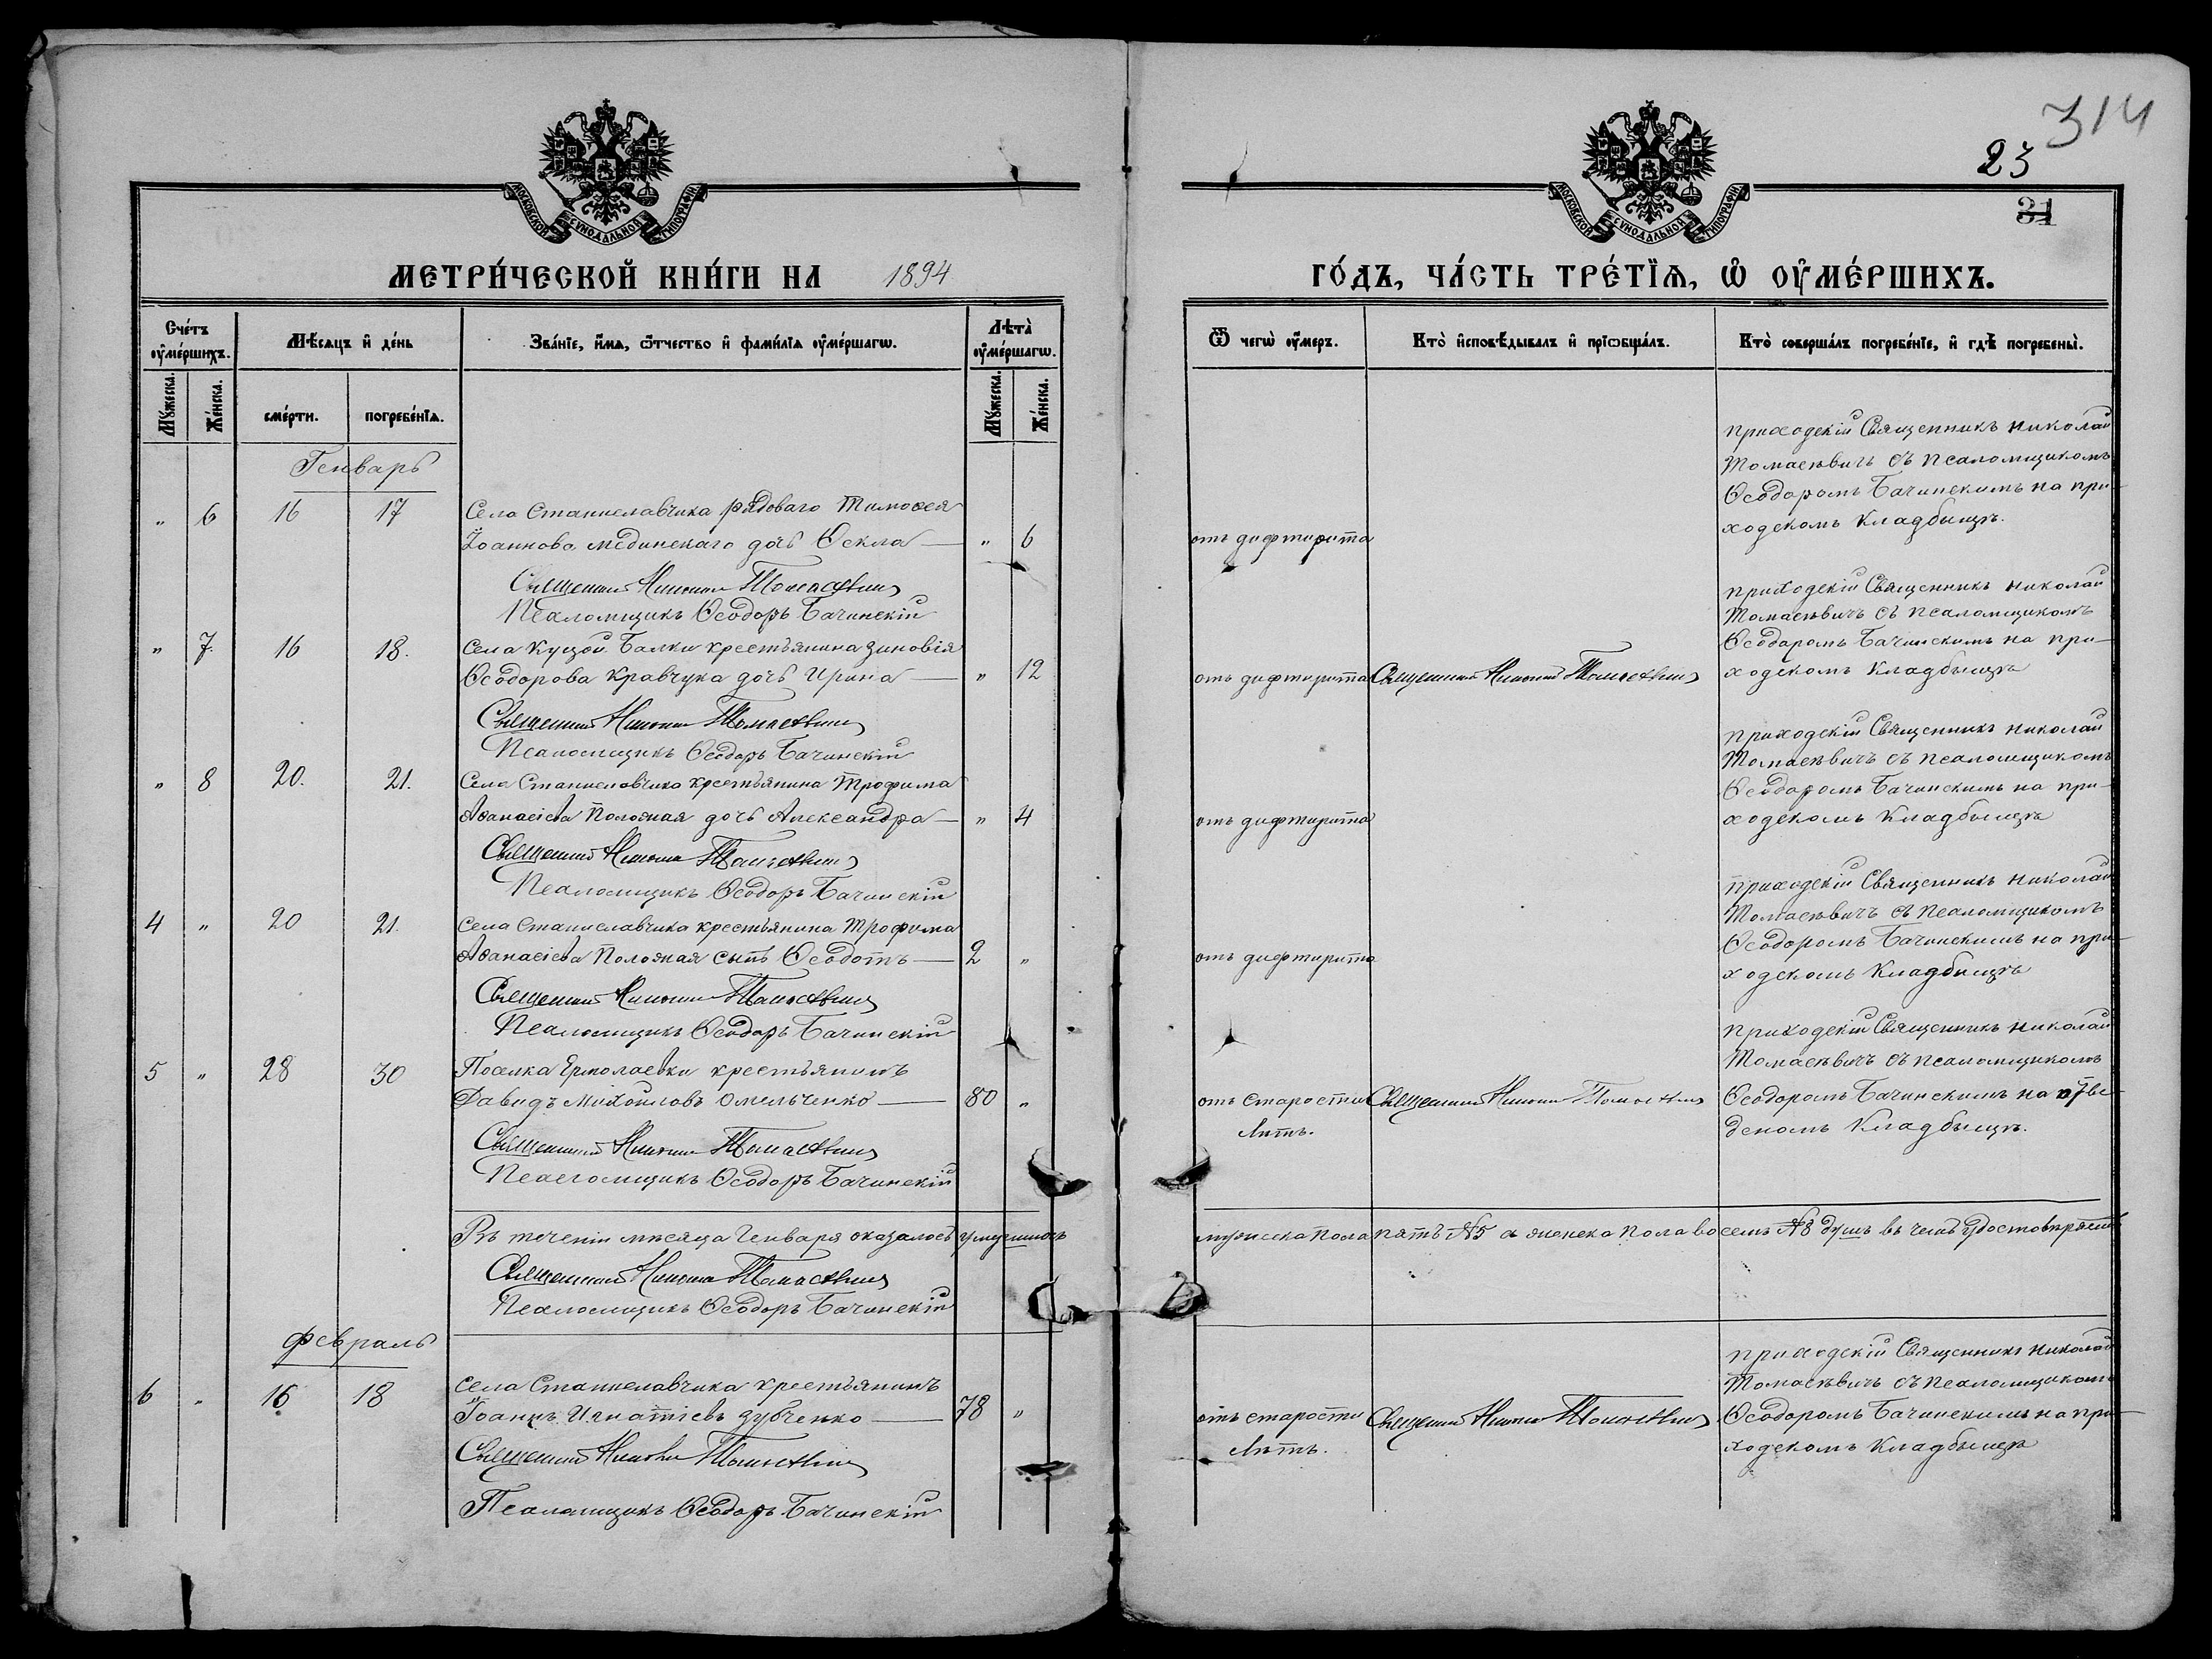 314
23
31
МОСКОВСКОЙ СУНОДАЛЬНОЙ ТИПОГРАФІИ
МОСКОВСКОЙ СУНОДАЛЬНОЙ ТИПОГРАФІИ
МЕТРИ́ЧЕСКОЙ КНИ́ГИ НА 1894
ГО́ДЪ, ЧА́СТЬ ТРЕ́ТЇѦ, Ѡ ОУ҆МЕ́РШИХЪ.
Счéтъ оумéршихъ.
Мѣ́сяцъ и дéнь
Звáніе, и́мя, ѿчество и фамíлія оумéршагѡ.
Лѣтà оумéршагѡ.
Мꙋ́жеска.
Жéнска.
смéрти.
погребéнїѧ.
Мꙋ́жеска.
Жéнска.
Ѿ чегѡ̀ оу́меръ.
Кто̀ и́сповѣ́дывалъ и прїѻбща́лъ.
Кто̀ совершáлъ погребéніе, и гдѣ̀ погребены̀.
Генварь
" 6 16 17 Села Станиславчика рядоваго Тимоѳея
Іоаннова Мединскаго дочь Ѳекла — " 6
Священникъ Николай Томасевич
Псаломщикъ Ѳеодоръ Бачинскій
отъ дифтерита
приходскій Священникъ Николай
Томасевичъ съ псаломщикомъ
Ѳеодоромъ Бачинскимъ на при-
ходскомъ кладбищѣ.
" 7 16 18. Села Куцой Балки крестьянина Зиновія
Ѳеодорова Кравчука дочь Ирина — " 12
Священникъ Николай Томасевич
Псаломщикъ Ѳеодоръ Бачинскій
отъ дифтерита Священникъ Николай Томасевич
приходскій Священникъ Николай
Томасевичъ съ псаломщикомъ
Ѳеодоромъ Бачинскимъ на при-
ходскомъ кладбищѣ
" 8 20. 21. Села Станиславчика крестьянина Трофима
Аѳанасіева Положая дочь Александра — " 4
Священникъ Николай Томасевич
Псаломщикъ Ѳеодоръ Бачинскій
отъ дифтерита
приходскій Священникъ Николай
Томасевичъ съ псаломщикомъ
Ѳеодоромъ Бачинскимъ на при-
ходскомъ кладбищѣ
4 " 20 21. Села Станиславчика крестьянина Трофима
Аѳанасіева Положая сынъ Ѳеодотъ — 2 "
Священникъ Николай Томасевич
Псаломщикъ Ѳеодоръ Бачинскій
отъ дифтерита
приходскій Священникъ Николай
Томасевичъ съ псаломщикомъ
Ѳеодоромъ Бачинскимъ на при-
ходскомъ кладбищѣ
5 " 28 30 Поселка Ермолаевки крестьянинъ
Давидъ Михайловъ Омельченко — 80 "
Священникъ Николай Томасевич
Псаломщикъ Ѳеодоръ Бачинскій
отъ старости Священникъ Николай Томасевич
лѣтъ.
приходскій Священникъ Николай
Томасевичъ съ псаломщикомъ
Ѳеодоромъ Бачинскимъ на отве-
деномъ кладбищѣ.
Въ теченіи мѣсяца Генваря оказалось умершихъ мужеска пола пять №5 а женска пола восемь №8 душъ въ чемъ удостовѣряемъ
Священникъ Николай Томасевич
Псаломщикъ Ѳеодоръ Бачинскій
Февраль
6 " 16 18 Села Станиславчика крестьянинъ
Іоаннъ Игнатіевъ Зубченко — 78 "
Священникъ Николай Томасевич
Псаломщикъ Ѳеодоръ Бачинскій
отъ старости Священникъ Николай Томасевич
лѣтъ.
приходскій Священникъ Николай
Томасевичъ съ псаломщикомъ
Ѳеодоромъ Бачинскимъ на при-
ходскомъ кладбищѣ